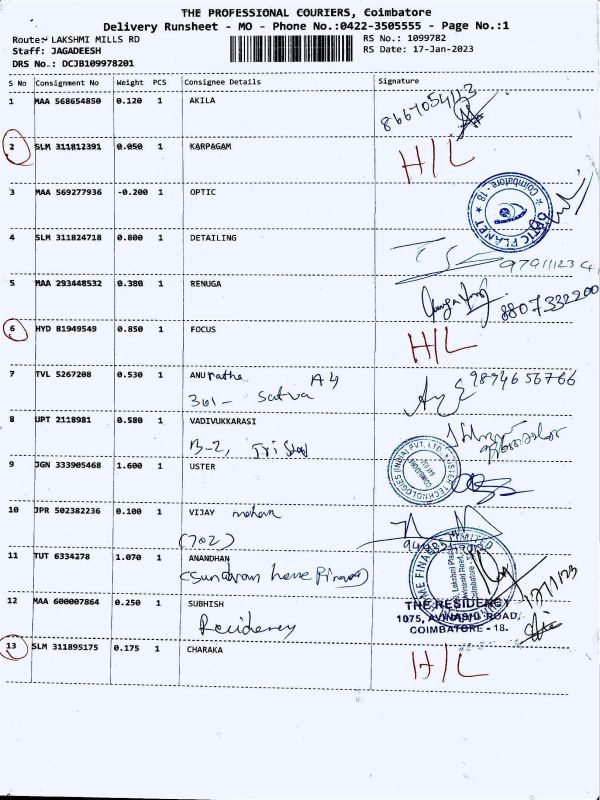 THE PROFESSIONAL COURIERS, Coimbatore
Delivery Runsheet - MO - Phone No.:0422-3505555 - Page No.:1
Route:- LAKSHMI MILLS RD RS No.: 1099782
Staff: JAGADEESH RS Date: 17-Jan-2023
DRS No.: DCJB109978201
S No Consignment No Weight PCS Consignee Details Signature
1 MAA 568654850 0.120 1 AKILA
2 SLM 311812391 0.050 1 KARPAGAM H/L
3 MAA 569277936 -0.200 1 OPTIC
OPTIC PLANET ★ Coimbatore - 18. ★
4 SLM 311824718 0.800 1 DETAILING
5 MAA 293448532 0.380 1 RENUGA
8807332200
6 HYD 81949549 0.850 1 FOCUS H/L
7 TVL 5267208 0.530 1 ANUratha A4
301- Satva
9894656766
8 UPT 2118981 0.580 1 VADIVUKKARASI
B-2,
9 JGN 333905468 1.600 1 USTER
USTER TECHNOLOGIES (INDIA) PVT. LTD.
COIMBATORE
10 JPR 502382236 0.100 1 VIJAY mohan
(702)
11 TUT 6334278 1.070 1 ANANDHAN
(Sundram home Finance)
17/1/23
12 MAA 600007864 0.250 1 SUBHISH
Residency
THE RESIDENCY
1075, AVINASHI ROAD,
COIMBATORE - 18.
13 SLM 311895175 0.175 1 CHARAKA H/L